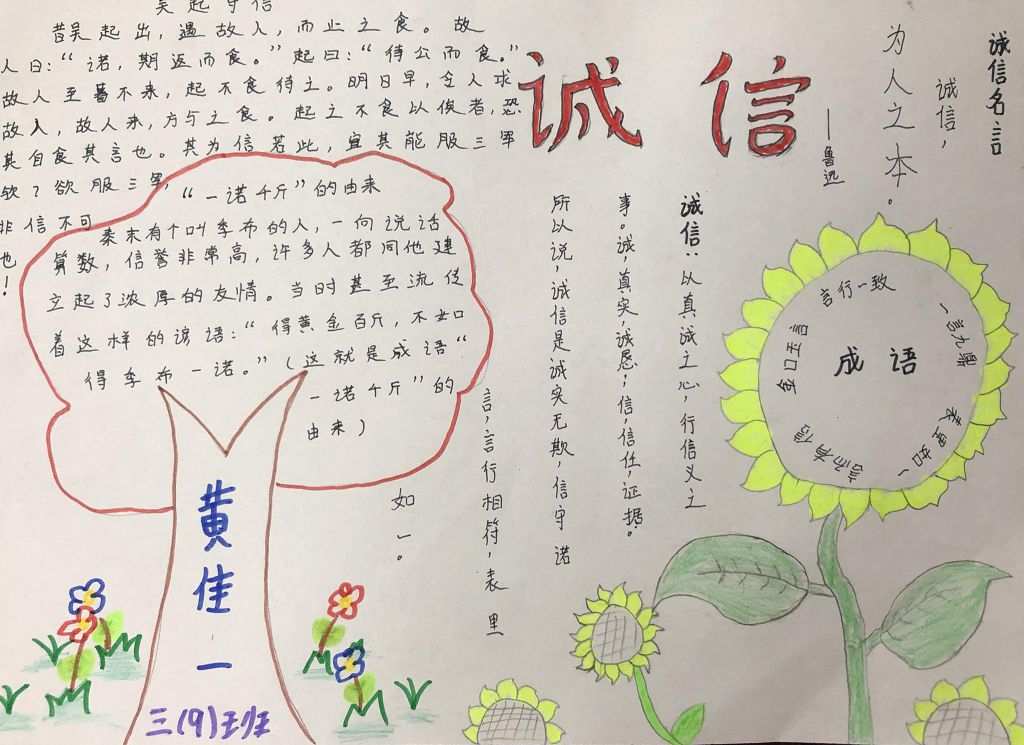 吴起守信
昔吴起出，遇故人，而止之食。故
人曰：“诺，期返而食。”起曰：“待公而食。”
故人至暮不来，起不食待之。明日早，令人求
故人，故人来，方与之食。起之不食以俟者，恐
其自食其言也。其为信若此，宜其能服三军
欤？欲服三军，
非信不可
也
！
“一诺千斤”的由来
秦末有个叫季布的人，一向说话
算数，信誉非常高，许多人都同他建
立起了浓厚的友情。当时甚至流传
着这样的谚语：“得黄金百斤，不如
得季布一诺。”（这就是成语“
一诺千斤”的
由来）
黄佳一
三(9)班
诚信
诚信名言
诚信，
为人之本。
——鲁迅
诚信：以真诚之心，行信义之
事。诚，真实，诚恳；信，信任，证据。
所以说，诚信是诚实无欺，信守诺
言，言行相符，表里
如一。
成语
言行一致
一言九鼎
表里如一
言而有信
金口玉言